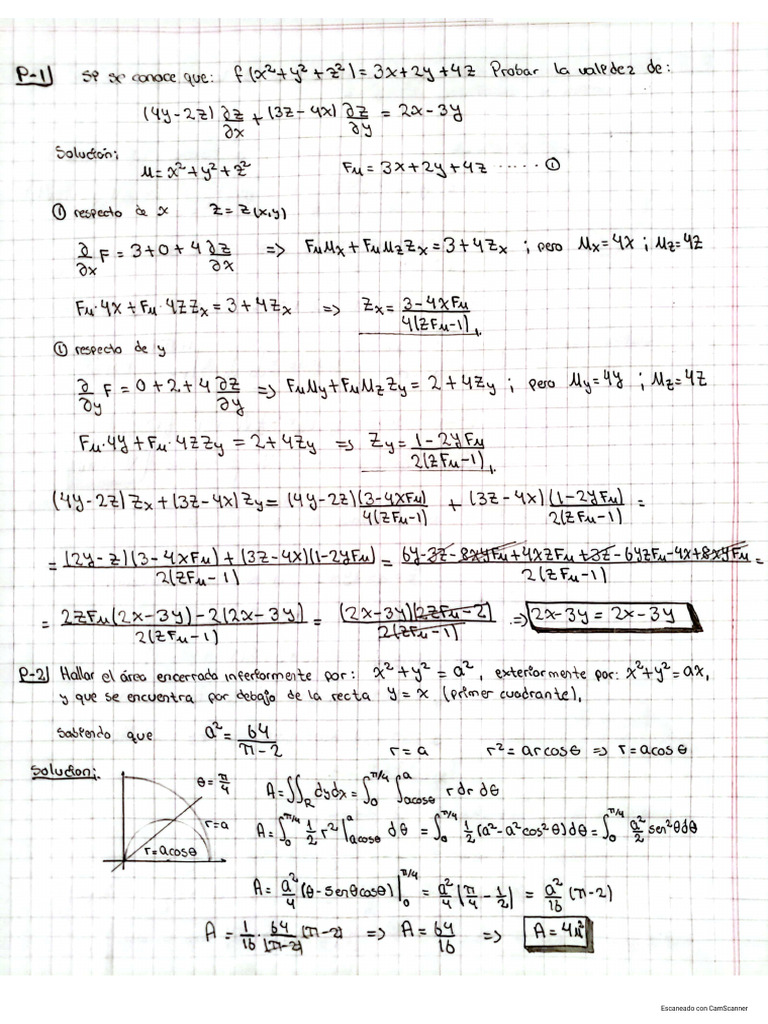 P-1) Si se conoce que: f(x²+y²+z²) = 3x+2y+4z Probar la validez de:
(4y-2z) ∂z/∂x + (3z-4x) ∂z/∂y = 2x-3y
Solución;
u = x²+y²+z² Fu = 3x+2y+4z ······ ①
① respecto de x z = z(x,y)
∂/∂x F = 3+0+4 ∂z/∂x => FuUx + FuUzZx = 3+4Zx ; pero Ux=4x ; Uz=4z
Fu·4x + Fu·4zZx = 3+4Zx => Zx = (3-4xFu)/(4(zFu-1))
① respecto de y
∂/∂y F = 0+2+4 ∂z/∂y => FuUy + FuUzZy = 2+4Zy ; pero Uy=4y ; Uz=4z
Fu·4y + Fu·4zZy = 2+4Zy => Zy = (1-2yFu)/(2(zFu-1))
(4y-2z)Zx + (3z-4x)Zy = (4y-2z)(3-4xFu)/(4(zFu-1)) + (3z-4x)(1-2yFu)/(2(zFu-1)) =
= ((2y-z)(3-4xFu)+(3z-4x)(1-2yFu))/(2(zFu-1)) = (6y-3z-8xyFu+4xzFu+3z-6yzFu-4x+8xyFu)/(2(zFu-1)) =
= (2zFu(2x-3y)-2(2x-3y))/(2(zFu-1)) = ((2x-3y)(2zFu-2))/(2(zFu-1)) => 2x-3y = 2x-3y
P-2) Hallar el área encerrada inferiormente por: x²+y²=a², exteriormente por: x²+y²=ax,
y que se encuentra por debajo de la recta y=x (primer cuadrante),
sabiendo que a² = 64/(π-2) r=a r²=arcosθ => r=acosθ
Solucion;
θ=π/4
r=a
r=acosθ
A = ∬_R dydx = ∫₀^(π/4) ∫_(acosθ)^a r dr dθ
A = ∫₀^(π/4) 1/2 r² |_(acosθ)^a dθ = ∫₀^(π/4) 1/2 (a²-a²cos²θ)dθ = ∫₀^(π/4) a²/2 sen²θdθ
A = a²/4 (θ-senθcosθ)|₀^(π/4) = a²/4 (π/4 - 1/2) = a²/16 (π-2)
A = 1/16 · 64/(π-2) (π-2) => A = 64/16 => A = 4u²
Escaneado con CamScanner